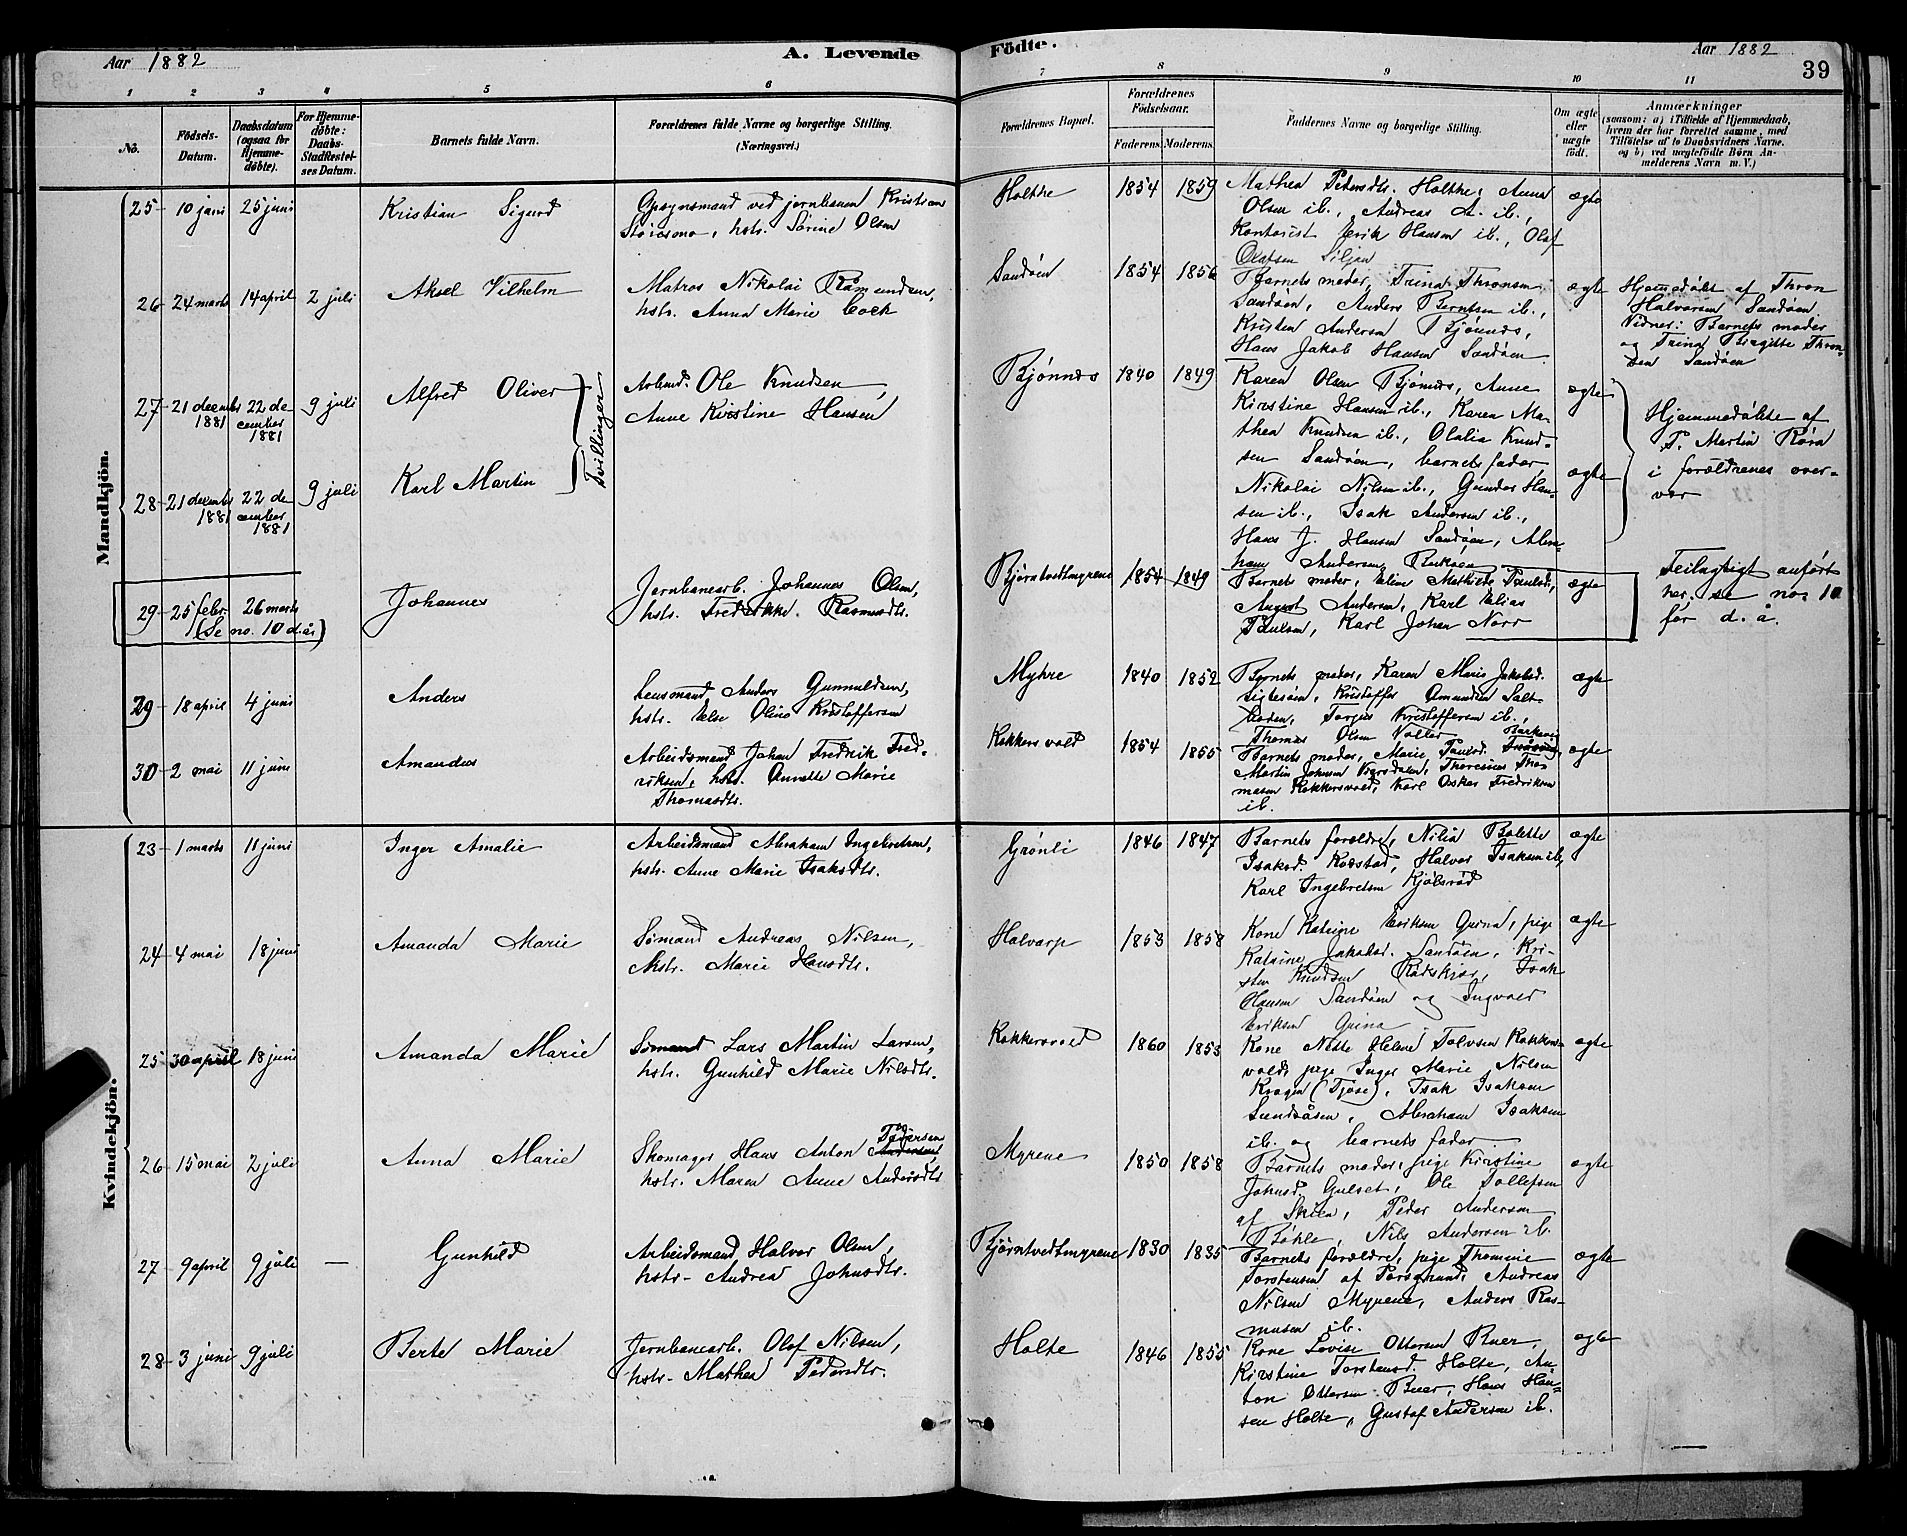 Aar 1882
A. Levende
Födte.
Aar 1882
39
1 2 3 4 5 6 7 8 9 10 11
No.
Födsels-
Datum.
Daabsdatum
(ogsaa for
Hjemme-
döbte).
For Hjemme-
döbte:
Daabs-
Stadfæstel-
ses Datum.
Barnets fulde Navn.
Forældrenes fulde Navne og borgerlige Stilling.
(Næringsvei.)
Forældrenes Bopæl.
Forældrenes
Födselsaar.
Faderens. Moderens.
Faddernes Navne og borgerlige Stilling.
Om ægte
eller
uægte
født.
Anmærkninger
(saasom: a) i Tilfælde af Hjemmedaab,
hvem der har forrettet samme, med
Tilföielse af to Daabsvidners Navne.
og b) ved uægtefödte Börn An-
melderens Navn m. V.)
Mandkjön.
25 10 juni 25 juni
Kristian Sigurd
Opsynsmand ved jernbanen Kristian
hstr. Sørine Olsen
Holthe 1854 1859
Mathea Pedersdtr. Holthe, Anna
Olsen ib., Andreas A. ib.,
Kontorist Henrik Hansen ib., Olaf
Olafsen Siljan
ægte
26 24 marts 14 april 2 juli
Aksel Vilhelm
Matros Nikolai Ramundsen,
hstr. Anna Marie Cock
Sandøen 1854 1856
Barnets moder, Trina Thronsen
Sandøen, Anders Berntsen ib.,
Kristen Andersen Bjønnes,
Hans Jakob Hansen Sandøen
ægte
Hjemmedøbt af Thron
Halvorsen Sandøen.
Vidner: Barnets moder
og Trina Birgitte Thron-
sen Sandøen
27 21 decembr 1881 22 december 1881 9 juli
Alfred Oliver
Tvillinger
Arbmd. Ole Knudsen,
Anne Kirstine Hansen
Bjønnes 1840 1849
Karen Olsen Bjønnes, Anne
Kirstine Hansen ib., Karen Ma-
thea Knudsen ib., Olalia Knud-
sen Sandøen, barnets fader,
Nikolai Nilsen ib., Gunder Han-
sen ib., Isak Andersen ib.,
Hans J. Hansen Sandøen, Abra-
ham Andersen
ægte
ægte
Hjemmedøbte af
P. Martin Røra
i forældrenes over-
vær
28 21 decembr 1881 22 december 1881 9 juli
Karl Martin
29 25 febr. 26 marts
(Se no. 10 d. år)
Johannes
Jernbanearb. Johannes Olsen,
hstr. Fredrikke Rasmusdtr.
Bjørntvedtmyrene 1854 1849
Barnets moder, Eline Mathilde Paulsd.,
August Andersen, Karl Elias
Paulsen, Karl Johan Narr
ægte
Feilagtigt anført
her. se no. 10
for d. å.
29 18 april 4 juni
Anders
Lensmand Anders Gunnuldsen,
hstr. Else Oline Kristoffersen
Myhre 1840 1852
Barnets moder, Karen Marie Jakobsd.
Sigtesøen, Kristoffer Amundsen Salt-
boden, Torger Kristoffersen ib.,
Thomas Olsen Valler
ægte
30 2 mai 11 juni
Amandus
Arbeidsmand Johan Fredrik Fred-
riksen, hstr. Annette Marie
Thomasdtr.
Kokkersvold 1854 1855
Barnets moder, Marie Paulsd.
Martin Johnsen, Thoresius Tho-
masen Kokkersvold, Karl Oskar Fredriksen
ib.
ægte
Kvindekjön.
23 1 marts 11 juni
Inger Amalie
Arbeidsmand Abraham Ingebretsen,
hstr. Anne Marie Isaksdtr.
Grønli 1846 1847
Barnets forældre, Nilia Bolette
Isaksd. Kolstad, Halvor Isaksen ib,
Karl Ingebretsen Kjølsrød
ægte
24 4 mai 18 juni
Amanda Marie
Sømand Andreas Nilsen,
hstr. Marie Hansdtr.
Halvarp 1853 1858
Kone Katrine Eriksen Grina, pige
Katrine Jakobsd. Sandøen, Kri-
sten Knudsen Rødskjær, Isak
Hansen Sandøen og Ingvald
Eriksen Grina
ægte
25 30 april 18 juni
Amanda Marie
Sømand Lars Martin Larsen,
hstr. Gunhild Marie Nilsdtr.
Kokkersvold 1860 1853
Kone Nette Helene Tolvsen Kokkers-
vold, pige Inger Marie Nilsen
Kragen (Tjøse), Isak Isaksen
Sundsåsen, Abraham Isaksen
ib. og barnets fader
ægte
26 15 mai 2 juli
Anna Marie
Skomager Hans Anton Andersen Pedersen
hstr. Maren Anne Andersdtr
Myrene 1850 1858
Barnets moder, pige Kirstine
Johnsd. Gulset, Ole Tollefsen
af Skien, Peder Andersen
Bøhle, Nils Andersen ib.
ægte
27 9 april 9 juli —
Gunhild
Arbeidsmand Halvor Olsen,
hstr. Andrea Johnsdtr.
Bjørntvedtmyrene 1830 1835
Barnets forældre, pige Thomine
Torstensen af Porsgrund, Andreas
Nilsen Myrene, Anders Ras-
musen ib.
ægte
28 3 juni 9 juli
Berte Marie
Jernbanearb. Olaf Nilsen,
hstr. Mathea Pedersdtr.
Holte 1846 1855
Kone Lovise Ottersen Buer,
Kirstine Torstensd. Holte, An-
ton Ottersen Buer, Hans Han-
sen Holte, Gustaf Andersen ib.
ægte